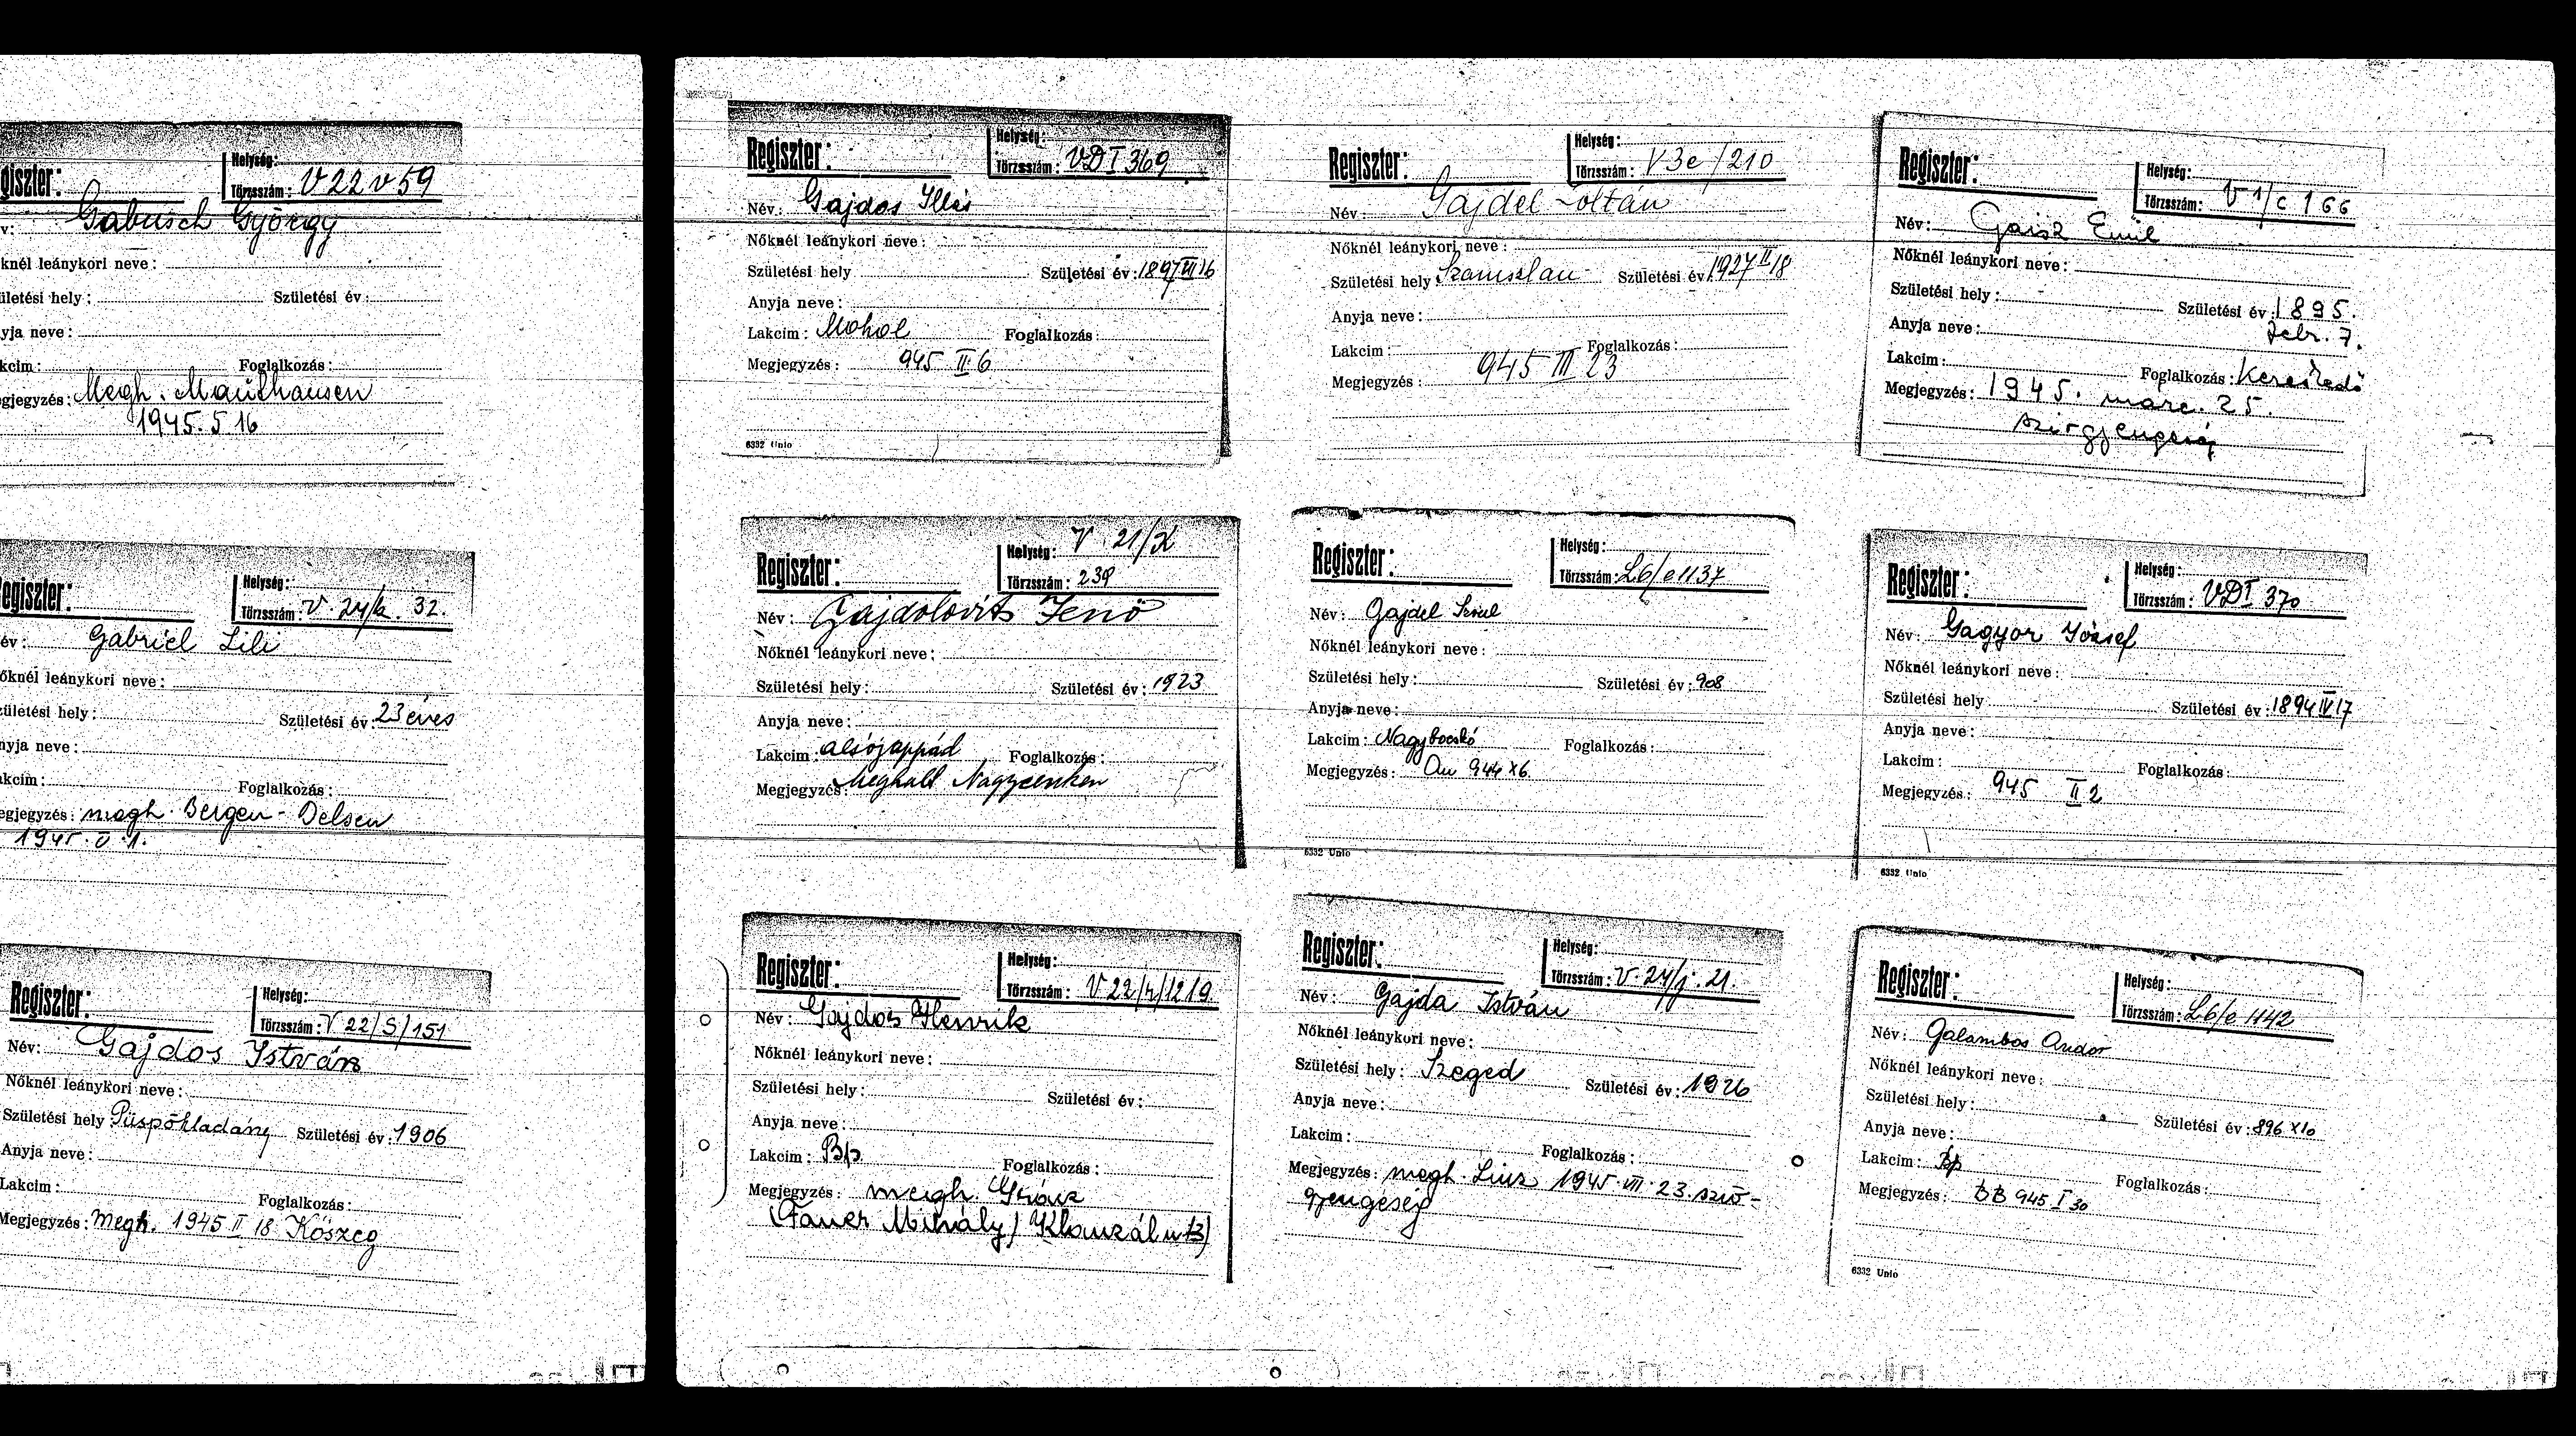 giszter:
Helység:
Törzsszám: V 22 v 59
v: Gabusch György
knél leánykori neve:
letési hely: Születési év:
yja neve:
kcim: Foglalkozás:
gjegyzés: Megh. Mauthausen
1945. 5 16
egiszter:
Helység:
Törzsszám: V. 24/k. 32.
év: Gabriel Lili
őknél leánykori neve:
ületési hely: Születési év: 23 éves
nyja neve:
akcim: Foglalkozás:
egjegyzés: megh. Bergen-Belsen
1945. V. 1.
Regiszter:
Helység:
Törzsszám: V 22/S/151
Név: Gajdos István
Nőknél leánykori neve:
Születési hely Püspökladány Születési év: 1906
Anyja neve:
Lakcim: Foglalkozás:
Megjegyzés: Megh. 1945 II 18 Kőszeg
Regiszter:
Helység
Törzsszám: VDI 369
Név: Gajdos Illés
Nőknél leánykori neve:
Születési hely Születési év: 1897 VII 16
Anyja neve:
Lakcim: Mohol Foglalkozás:
Megjegyzés: 945 II 6
6332 Unio
Regiszter:
Helység: V. 21/X
Törzsszám: 239
Név: Gajdolovits Jenő
Nőknél leánykori neve:
Születési hely: Születési év: 1923
Anyja neve:
Lakcim: alsójappád Foglalkozás:
Megjegyzés: Meghalt Nagycenken
Regiszter:
Helység:
Törzsszám: V 22/r/1219
Név: Gajdos Henrik
Nőknél leánykori neve:
Születési hely: Születési év:
Anyja neve:
Lakcim: Bp. Foglalkozás:
Megjegyzés: megh.
Mihály/ Klauzál u
Regiszter:
Helység:
Törzsszám: V 3e/210
Név: Gajdel Zoltán
Nőknél leánykori neve:
Születési hely Születési év 1927 II 18
Anyja neve:
Lakcim: Foglalkozás:
Megjegyzés: 945 III 23
Regiszter:
Helység:
Törzsszám: L6/e 1137
Név: Gajdel
Nőknél leánykori neve:
Születési hely: Születési év: 908
Anyja neve:
Lakcim: Nagybocskó Foglalkozás:
Megjegyzés: Au 944 X 6.
6332 Unio
Regiszter:
Helység:
Törzsszám: V. 24/j. 21.
Név: Gajda István
Nőknél leánykori neve:
Születési hely: Szeged Születési év: 1926
Anyja neve:
Lakcim: Foglalkozás:
Megjegyzés: megh. Linz 1945. VII. 23. szív-
gyengeség
Regiszter:
Helység:
Törzsszám: V 1/c 166
Név: Gaisz Emil
Nőknél leánykori neve:
Születési hely: Születési év: 1895.
Anyja neve: febr. 7.
Lakcim: Foglalkozás: Kereskedő
Megjegyzés: 1945. marc. 25.
szivgyengeség
Regiszter:
Helység:
Törzsszám: VDI 370
Név: Gagyor József
Nőknél leánykori neve:
Születési hely Születési év: 1894 IV 17
Anyja neve:
Lakcim: Foglalkozás:
Megjegyzés: 945 II 2
6332 Unio
Regiszter:
Helység:
Törzsszám: L6/e 1142
Név: Galambos Andor
Nőknél leánykori neve:
Születési hely: Születési év: 896 X 10
Anyja neve:
Lakcim: Bp Foglalkozás:
Megjegyzés: BB 945 I 30
6332 Unio